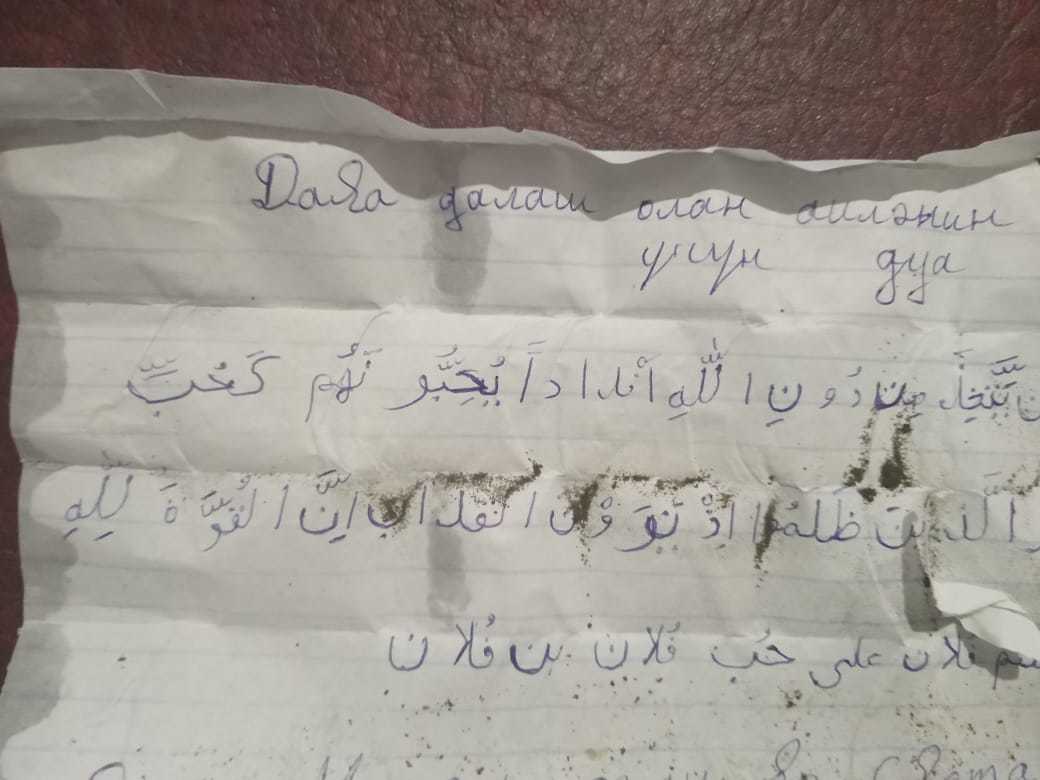 Дава далаш олан аиләнин
үчүн дуа
يَتَّخِذُ مِن دُونِ اللّٰهِ اَنْدَاداً يُحِبُّو نَهُم كَحُبِّ
الَّذِينَ ظَلَمُوا اِذْ يَرَوْنَ الْعَذَابَ اِنَّ الْقُوَّةَ لِلّٰهِ
فلان على حُب فُلان بن فُلان